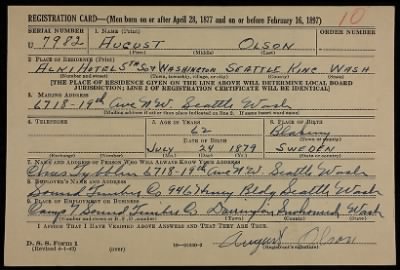 REGISTRATION CARD—(Men born on or after April 28, 1877 and on or before February 16, 1897)
10
SERIAL NUMBER 1. NAME (Print) ORDER NUMBER
U 7982 AUGUST OLSON
(First) (Middle) (Last)
2. PLACE OF RESIDENCE (Print)
ALKI HOTEL 5TH SO WASHINGTON SEATTLE KING WASH
(Number and street) (Town, township, village, or city) (County) (State)
[THE PLACE OF RESIDENCE GIVEN ON THE LINE ABOVE WILL DETERMINE LOCAL BOARD
JURISDICTION; LINE 2 OF REGISTRATION CERTIFICATE WILL BE IDENTICAL]
3. MAILING ADDRESS
6718-19th Ave N.W. Seattle Wash
[Mailing address if other than place indicated on line 2. If same insert word same]
4. TELEPHONE 5. AGE IN YEARS 6. PLACE OF BIRTH
62
DATE OF BIRTH (Town or county)
JULY 24 1879 SWEDEN
(Exchange) (Number) (Mo.) (Day) (Yr.) (State or country)
7. NAME AND ADDRESS OF PERSON WHO WILL ALWAYS KNOW YOUR ADDRESS
6718-19th Ave N.W. Seattle Wash
8. EMPLOYER'S NAME AND ADDRESS
Sound Timber Co 946 Henry Bldg Seattle Wash
9. PLACE OF EMPLOYMENT OR BUSINESS
Camp 7 Sound Timber Co Darrington Snohomish Wash
(Number and street or R. F. D. number) (Town) (County) (State)
I AFFIRM THAT I HAVE VERIFIED ABOVE ANSWERS AND THAT THEY ARE TRUE.
D. S. S. Form 1
(Revised 4-1-42) (over) August Olson